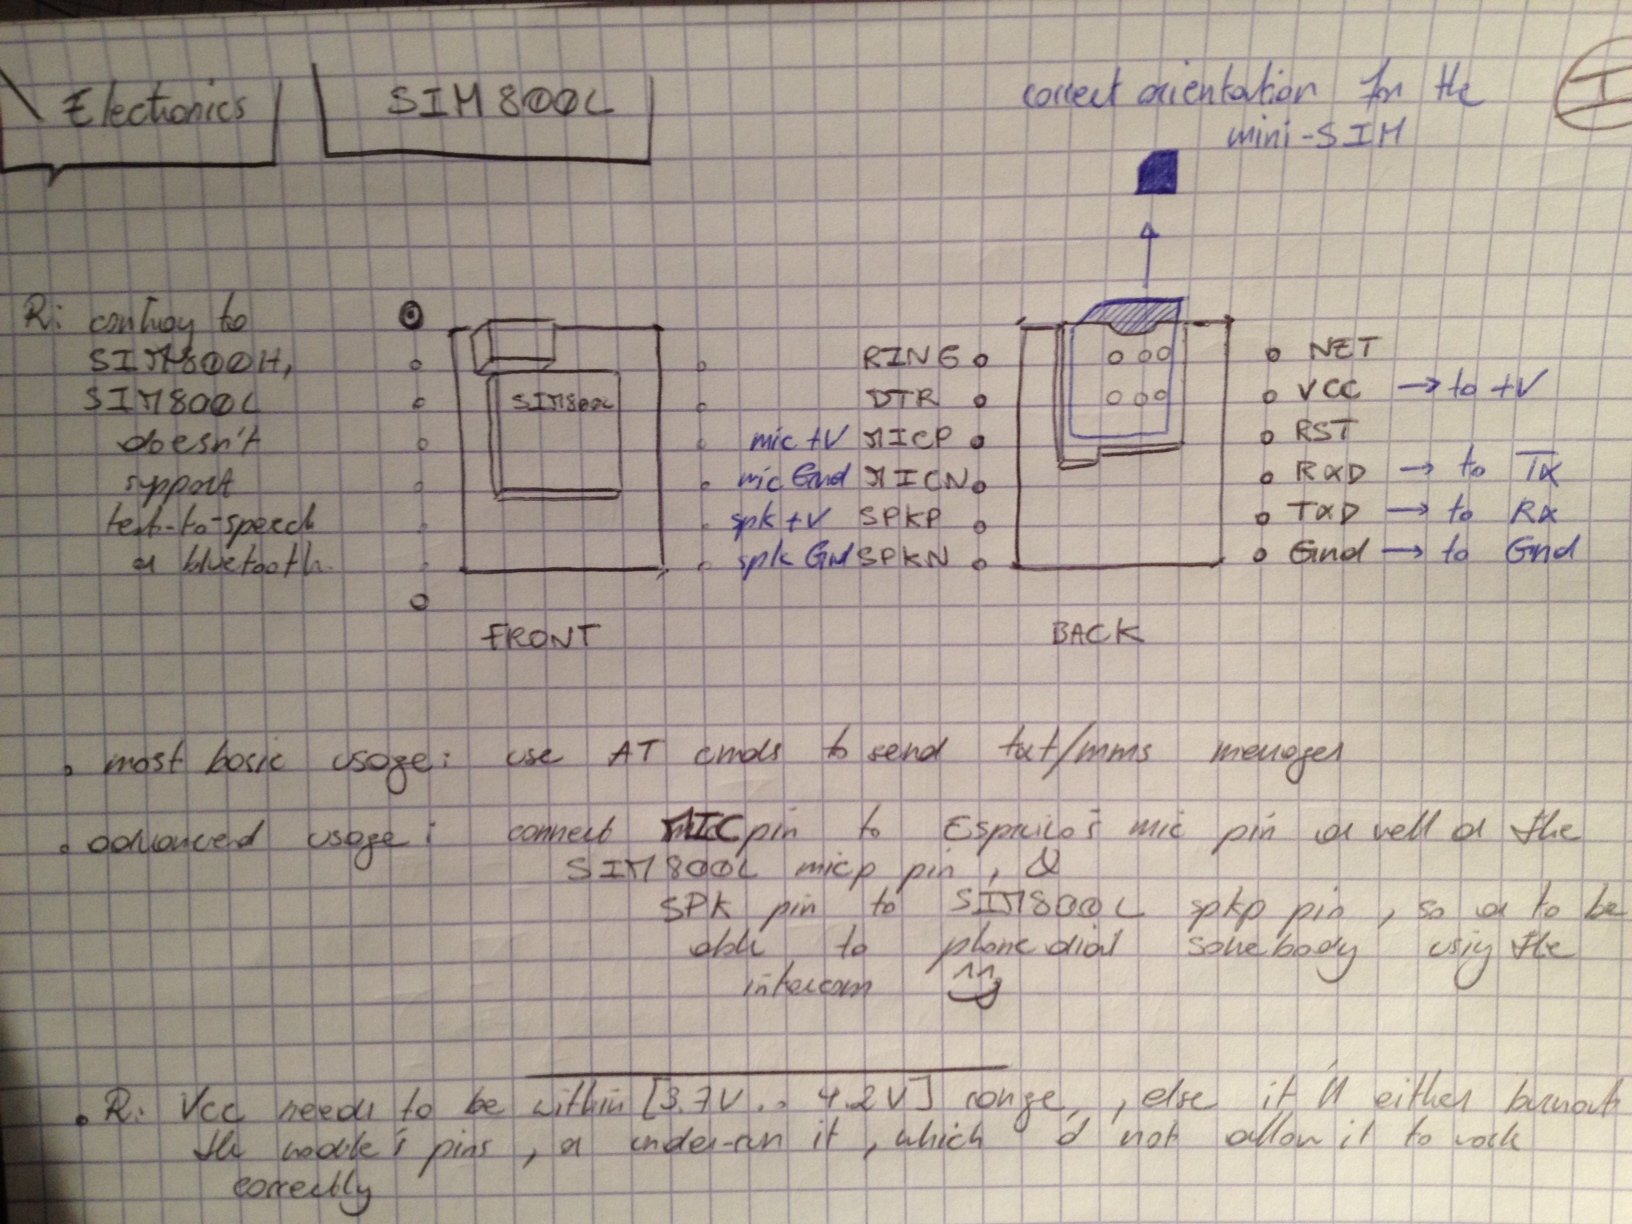 Electronics
SIM800L
correct orientation for the
mini-SIM
I
R: contray to
SIM800H,
SIM800L
doesn't
support
text-to-speech
or bluetooth.
SIM800L
FRONT
RING
DTR
mic +V MICP
mic Gnd MICN
spk +V SPKP
spk Gnd SPKN
BACK
NET
VCC → to +V
RST
RXD → to TX
TXD → to RX
Gnd → to Gnd
• most basic usage: use AT cmds to send txt/mms messages
• advanced usage: connect MIC pin to Espruino's mic pin as well as the
SIM800L micp pin, &
SPK pin to SIM800L spkp pin, so as to be
able to phone dial somebody using the
intercom ^^
• R: Vcc needs to be within [3.7V .. 4.2V] range, else it'll either burnout
the module's pins, or under-run it, which 'd not allow it to work
correctly